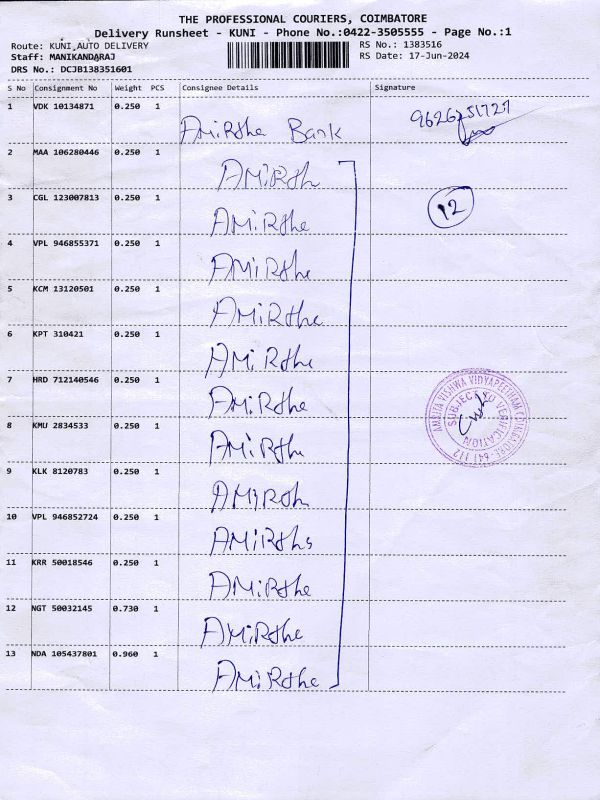 THE PROFESSIONAL COURIERS, COIMBATORE
Delivery Runsheet - KUNI - Phone No.:0422-3505555 - Page No.:1
Route: KUNI,AUTO DELIVERY
RS No.: 1383516
Staff: MANIKANDARAJ
RS Date: 17-Jun-2024
DRS No.: DCJB138351601
S No Consignment No Weight PCS Consignee Details Signature
1 VDK 10134871 0.250 1
AMiRthe Bank 9626751727
2 MAA 106280446 0.250 1
AMiRth
3 CGL 123007813 0.250 1
AMiRthe 12
4 VPL 946855371 0.250 1
AMiRthe
5 KCM 13120501 0.250 1
AMiRthe
6 KPT 310421 0.250 1
AMiRthe
7 HRD 712140546 0.250 1
AMiRthe
AMRITA VISHWA VIDYAPEETHAM COIMBATORE-641 112
SUBJECT TO VERIFICATION
8 KMU 2834533 0.250 1
AMiRthe
9 KLK 8120783 0.250 1
AMiRth
10 VPL 946852724 0.250 1
AMiRths
11 KRR 50018546 0.250 1
AMiRthe
12 NGT 50032145 0.730 1
AMiRthe
13 NDA 105437801 0.960 1
AMiRthe